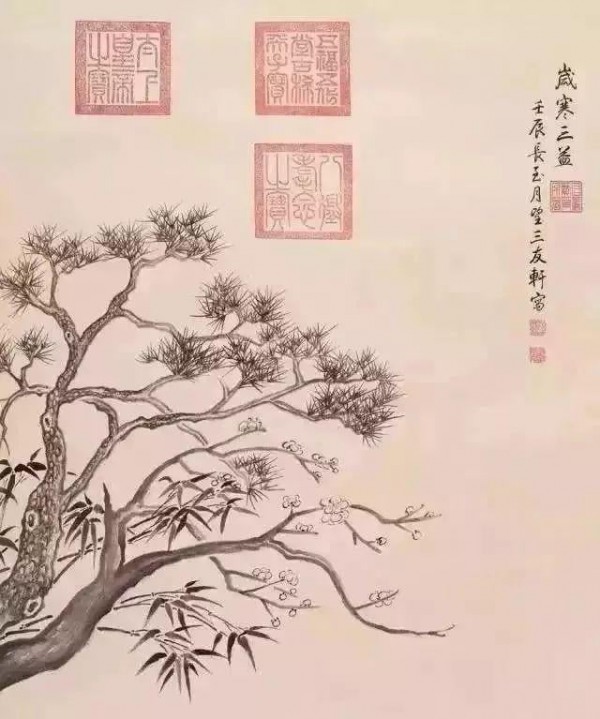 歲寒三益
壬辰長至月望三友軒寫
五福五代
堂古稀
天子寶
八徵
耄念
之寶
太上
皇帝
之寶